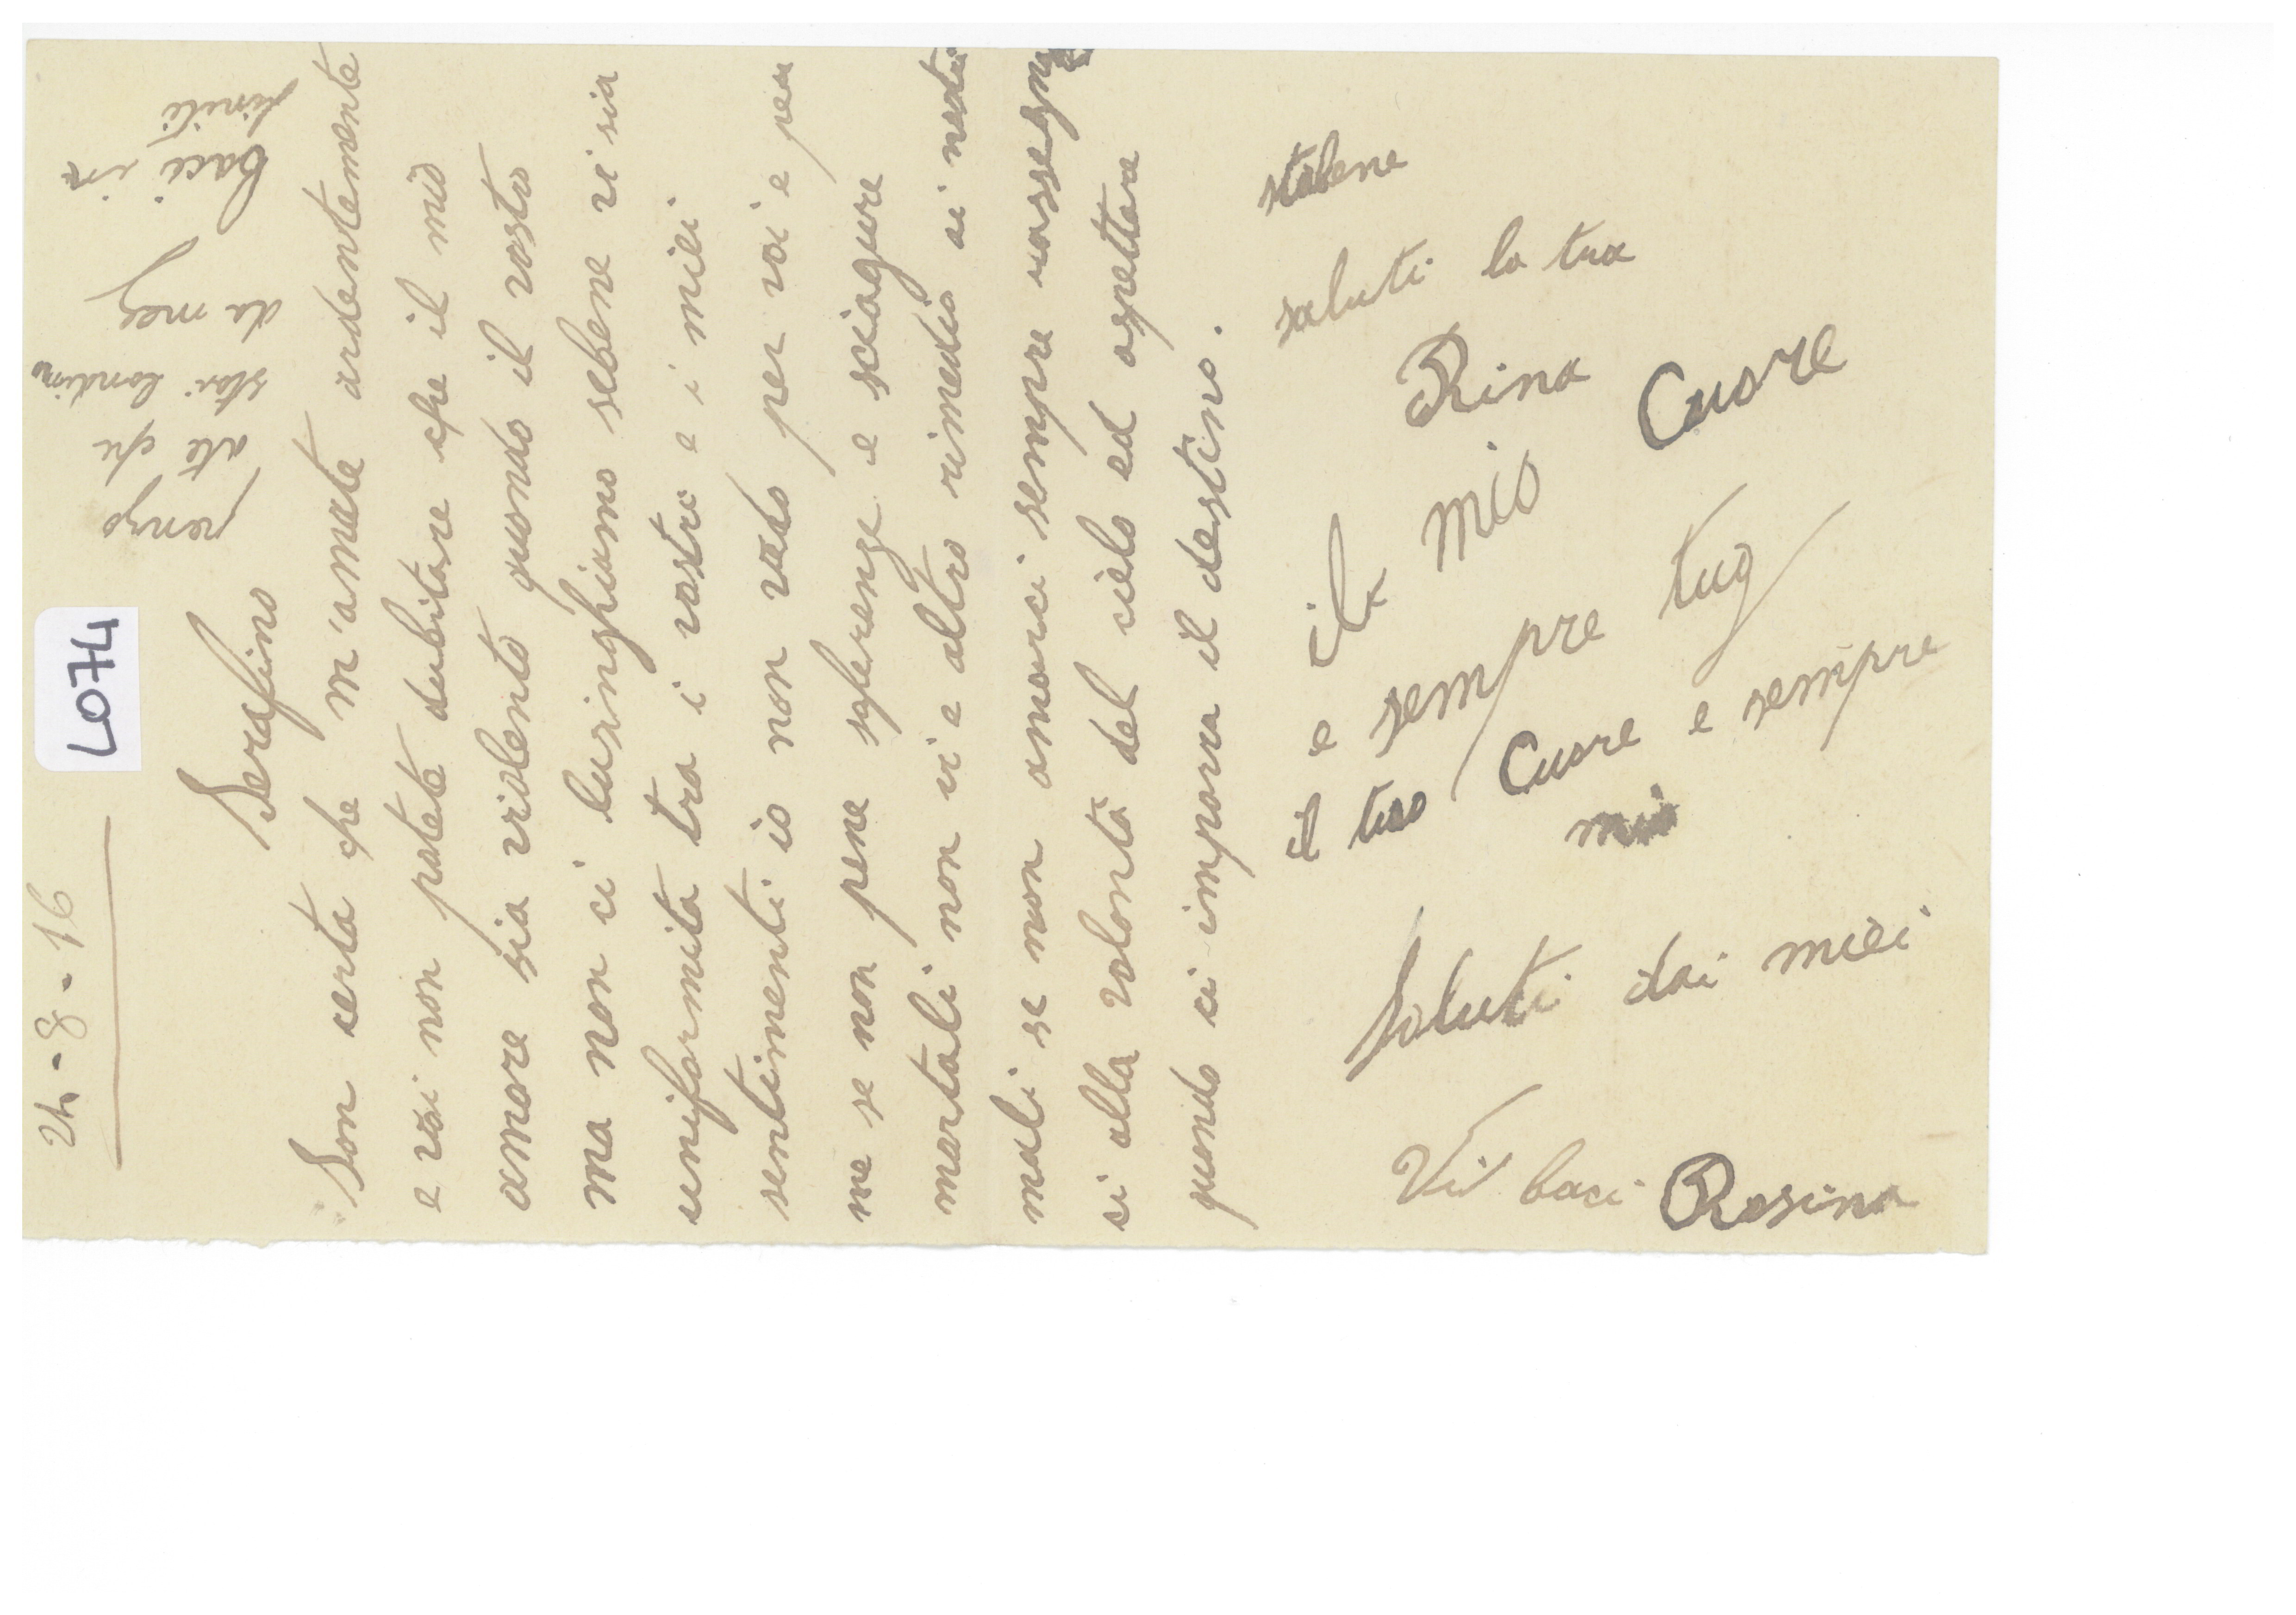 24-8-16
L074
Serafino
Son certa che m'amate ardentemente
e voi non potete dubitare che il mio
amore sia violento quando il vostro
ma non ci lusinghiamo sebene vi sia
uniformita tra i vostri e i miei
sentimenti io non vedo per voi e per
me se non pene soferenze e sciagure
mortali non vi e altro rimedio ai nostri
mali se non amarci sempre rassegnar
si alla volontà del cielo ed aspettare
quando ci imporra il destino.
stabene
saluti la tua
Rina
il mio Cuore
e sempre tuo
il tuo Cuore e sempre
mio
Saluti dai miei
Vi baci Rosina
penzo
sta che
stai lontino
da me
baci in
finiti